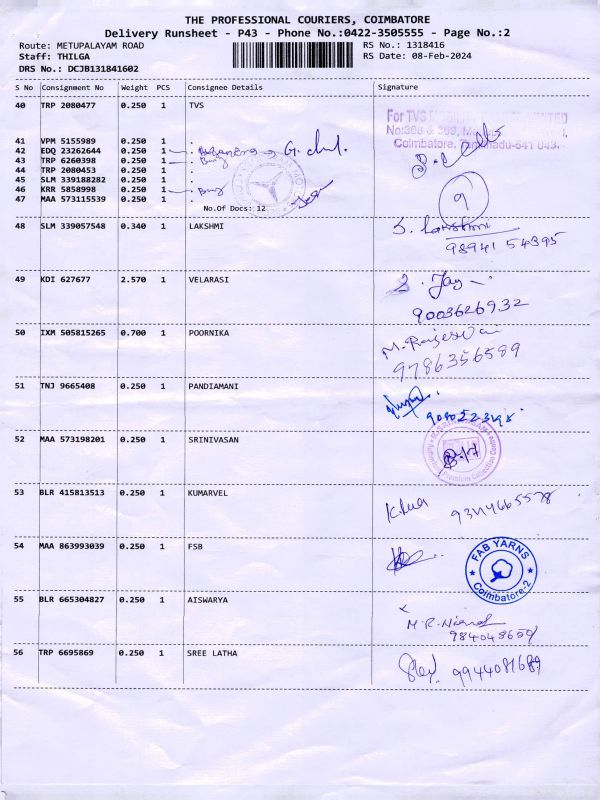 THE PROFESSIONAL COURIERS, COIMBATORE
Delivery Runsheet - P43 - Phone No.:0422-3505555 - Page No.:2
Route: METUPALAYAM ROAD RS No.: 1318416
Staff: THILGA RS Date: 08-Feb-2024
DRS No.: DCJB131841602
S No Consignment No Weight PCS Consignee Details Signature
40 TRP 2080477 0.250 1 TVS
For TVS LIMITED
Coimbatore, Tamilnadu-641 043.
41 VPM 5155989 0.250 1 .
42 EDQ 23262644 0.250 1 .
43 TRP 6260398 0.250 1 .
44 TRP 2080453 0.250 1 .
45 SLM 339188282 0.250 1 .
46 KRR 5858998 0.250 1 .
47 MAA 573115539 0.250 1 .
9
No.Of Docs: 12
48 SLM 339057548 0.340 1 LAKSHMI S. Lakshmi
98941 54395
49 KDI 627677 2.570 1 VELARASI S. Jay
9003626932
50 IXM 505815265 0.700 1 POORNIKA M. Rajeswari
9786356589
51 TNJ 9665408 0.250 1 PANDIAMANI
52 MAA 573198201 0.250 1 SRINIVASAN
53 BLR 415813513 0.250 1 KUMARVEL
54 MAA 863993039 0.250 1 FSB
FAB YARNS
Coimbatore-2
55 BLR 665304827 0.250 1 AISWARYA
56 TRP 6695869 0.250 1 SREE LATHA 9944081689